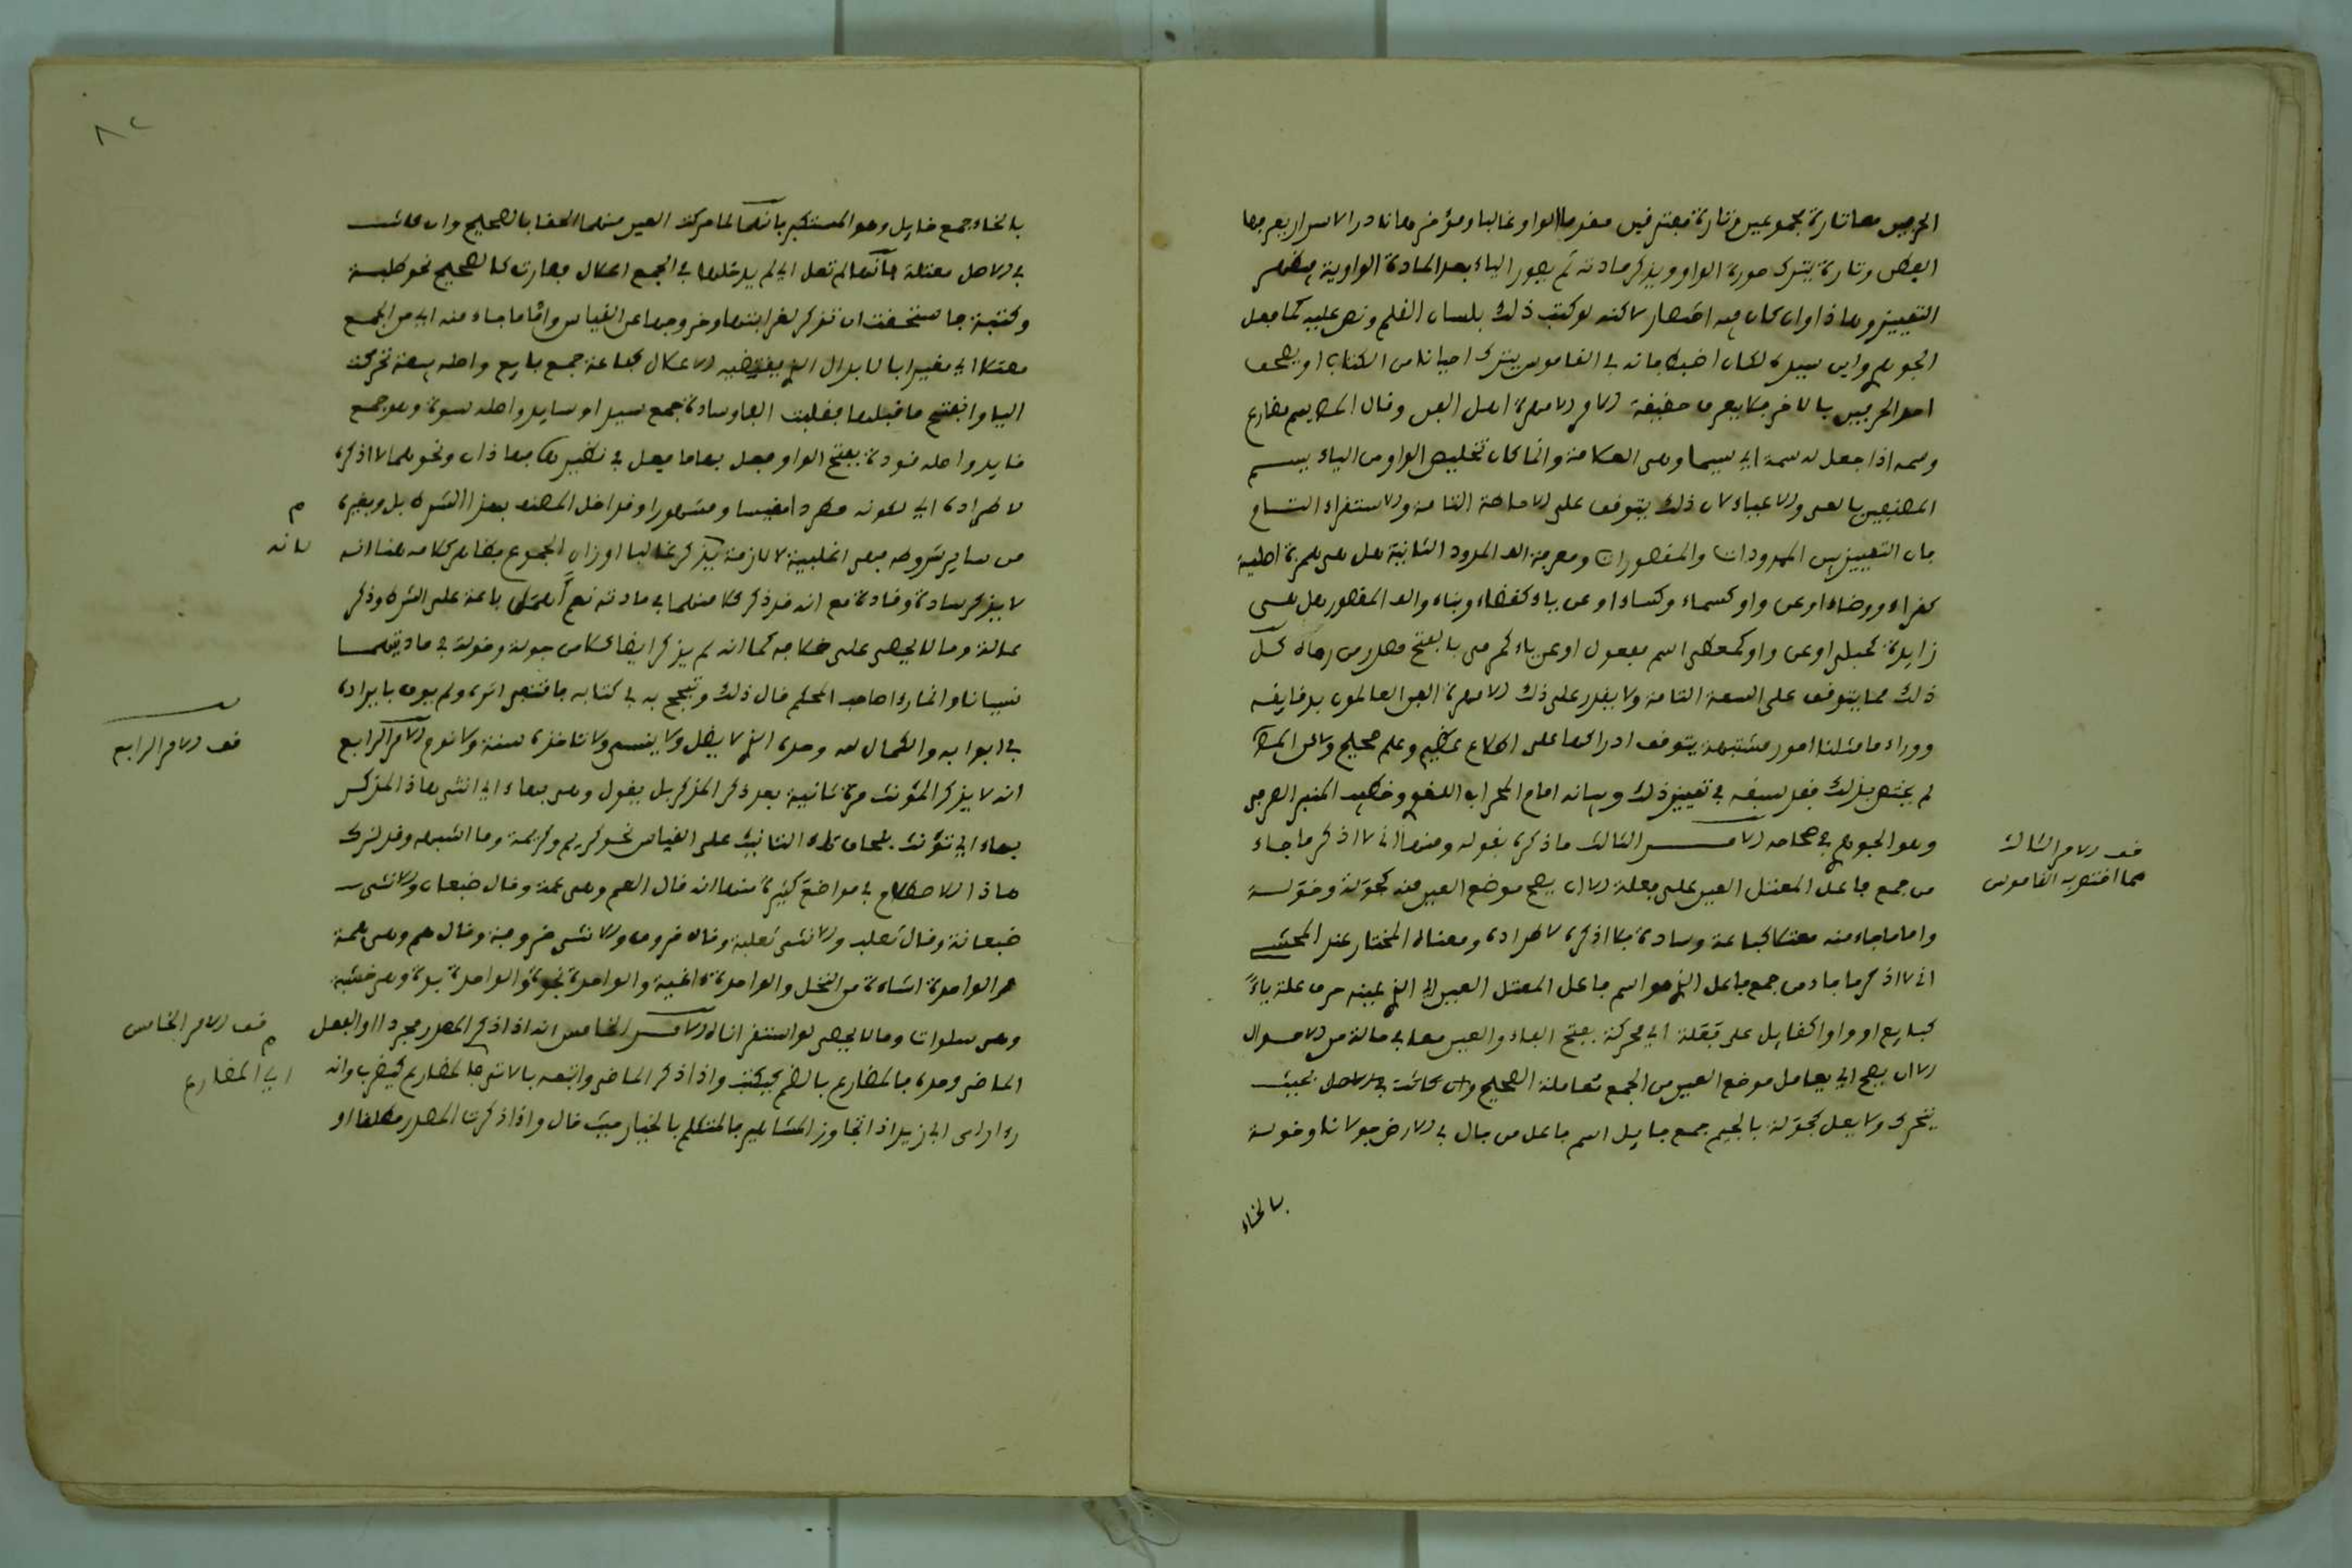 الحرفين معا تارة مجموعين وتارة مفترقين مقدما الواو غالبا ومؤخرهما نادرا لاسرار يعرفها
البعض وتارة يترك صورة الواو ويذكر مادته ثم يصور الياء بعد المادة الواوية
التمييز وهاذا وان كان فيه اختصار لاكنه لو كتب ذلك بلسان القلم ونص عليه كما فعل
الجوهري وابن سيده لكان اضبط فانه في القاموس يترك احيانا من الكتاب او يصحف
احد الحرفين بالاخر فلا يعرف حقيقة الامر الا مهرة اهل الفن وقال
وسمه اذا جعل له سمة اي سيما وهى العلامة وانما كان تخليص الواو من الياء يسم
المصنفين بالعى والاعياء لان ذلك يتوقف على الاحاطة التامة والاستقراء التام
فان التمييز بين الممدودات والمقصورات ومعرفة الف الممدود الثانية هل هى همزة اصلية
كقراء ووضاء او عن واو كسماء وكساء او عن ياء كقضاء وبناء والف المقصور هل هى
زايدة كحبلى او عن واو كمعطى اسم مفعول او عن ياء كمرمى بالفتح مصدر من رماه كل
ذلك مما يتوقف على السعة التامة ولا يقدر على ذلك الا مهرة الفن العالمون بدقايقه
ووراء ما مثلنا امور مشتبهة يتوقف ادراكها على اطلاع عظيم وعلم صحيح ولاكن المص
لم يختص بذلك فقد سبقه في تمييز ذلك وبيانه امام المحراب اللغوي وخطيب المنبر الصرفي
وهو الجوهري في صحاحه الامر الثالث ما ذكره بقوله ومنها اني لا اذكر ما جاء
من جمع فاعل المعتل العين على فعلة الا ان يصح موضع العين منه كجولة وخولة
واما ما جاء منه معتلا كباعة وسادة فلا اذكره لاطراده ومعناه المختار عند المحشي
اني لا اذكر ما جاء من جمع فاعل الذي هو اسم فاعل المعتل العين اي الذي عينه حرف علة ياء
كبايع او واوا كقايل على فعلة اي محركة بفتح الفاء والعين معا في حالة من الاحوال
الا ان يصح اي يعامل موضع العين من الجمع معاملة الصحيح وان كانت في الاصل بحيث
يتحرك ولا يعل كجولة بالجيم جمع جايل اسم فاعل من جال في الارض جولانا وخولة
بالخاء
قف الامر الثالث
مما اختص به القاموس
٨٢
بالخاء جمع خايل وهو المستكبر فانهما لما حركت العين منهما الحقا بالصحيح وان كانت
في الاصل معتلة فانها لم تعل اي لم يدخلها في الجمع اعلال فصارت كالصحيح نحو طلبة
وكتبة فاستحقت ان تذكر لغرابتها وخروجها عن القياس واما ما جاء منه اي من الجمع
معتلا اي مغيرا بالابدال الذي يقتضيه الاعلال كباعة جمع بايع واصله بيعة تحركت
اليا وانفتح ما قبلها فقلبت الفا وسادة جمع سيد او سايد واصله سودة وهو جمع
قايد واصله قودة بفتح الواو فعل بها ما فعل في نظيرتها فهاذان ونحوهما لا اذكره
لاطراده اي لكونه مطردا مقيسا ومشهورا وقد اخل المصنف بهذا الشرط بل وبغيره
من ساير شروطه فهى اغلبية لا لازمة يذكر غالبا اوزان الجموع فظاهر كلامه هنا انه
لا يذكر سادة وقادة مع انه قد ذكر كلا منهما في مادته نعم اهمل باعة على الشرط وذكر
عالة وما لا يحصى على خلافه كما انه لم يذكر ايضا كلا من جولة وخولة في مادتهما
نسيانا واغفارا صاحب المحكم قال ذلك وتبجح به في كتابه فاقتفى اثره ولم يوف بايراده
في ابوابه والكمال لله وحده الذي لا يضل ولا ينسى ولا تاخذه سنة ولا نوم الامر الرابع
انه لا يذكر المؤنث مرة ثانية بعد ذكر المذكر بل يقول وهى بهاء اي انثى هاذا المذكر
بهاء اي تؤنث بلحاق هاء التانيث على القياس نحو كريم وكريمة وما اشبهه وقد ترك
هاذا الاصطلاح في مواضع كثيرة منها انه قال العم وهى عمة وقال ضبعان والانثى
ضبعانة وقال ثعلب والانثى ثعلبة وقال خروف والانثى خروفة وقال هم وهى همة
وهى سلوات وما لا يحصى لو استقرانا الامر الخامس انه اذا ذكر المصدر مجردا او الفعل
الماضي وحده فالمضارع بالضم كيكتب واذا ذكر الماضي واتبعه بالاتي فالمضارع كيضرب وانه
اي زيد اذا تجاوز المشاهير فالمتكلم بالخيار حيث قال واذا ذكرت المصدر مطلقا او
م
لانه
قف الامر الرابع
قف الامر الخامس
اي المضارع